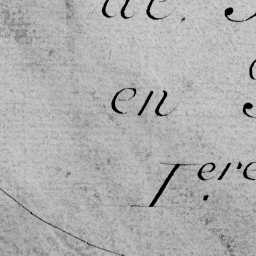 de.
en
I.ere